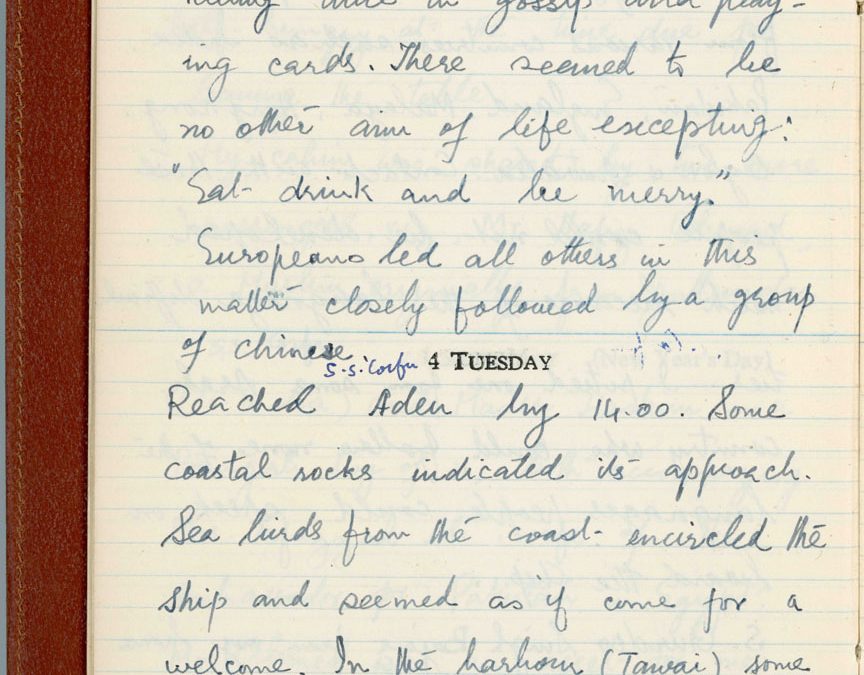 time in gossip and play-
ing cards. There seemed to be
no other aim of life excepting:
"Eat drink and be merry."
Europeans led all others in this
matter closely followed by a group
of chinese
S.S. Corfu 4 TUESDAY
Reached Aden by 14.00. Some
coastal rocks indicated its approach.
Sea birds from the coast- encircled the
ship and seemed as if come for a
welcome. In the harbour (Tawai) some